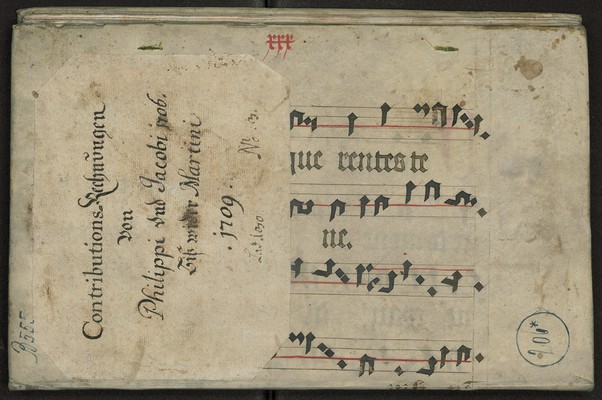 Contributions-Rechnungen
von
Philippi vnd Jacobi 1708.
Biß wider Martini
1709.
N: 3.
xxx
que rentes te
ne.
200*